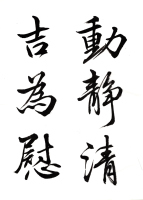 動靜清
吉為慰